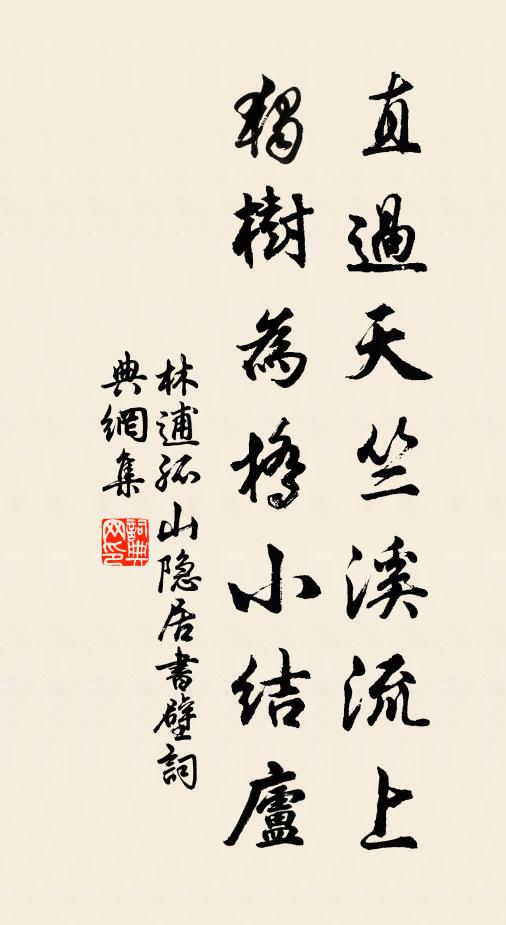 直過天竺溪流上
獨樹為橋小結廬
林逋孤山隐居書壁詞
典網集
詞典網印